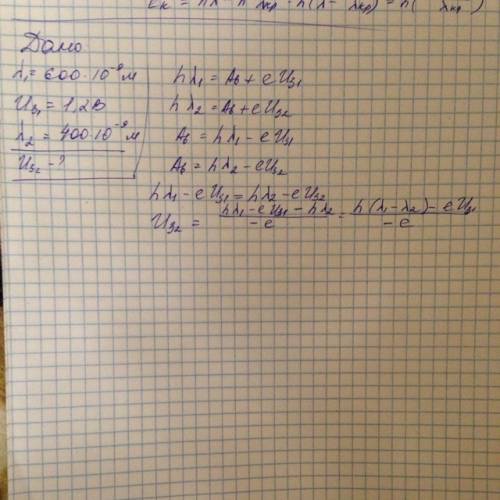 Eк = hλ - h λкр = h(λ - λкр) = h(
Дано
λ₁ = 600·10⁻⁹ м
Uз₁ = 1,2В
λ₂ = 400·10⁻⁹ м
Uз₂ - ?
hλ₁ = Aв + eUз₁
hλ₂ = Aв + eUз₂
Aв = hλ₁ - eUз₁
Aв = hλ₂ - eUз₂
hλ₁ - eUз₁ = hλ₂ - eUз₂
Uз₂ = (hλ₁ - eUз₁ - hλ₂)/(-e) = (h(λ₁ - λ₂) - eUз₁)/(-e)